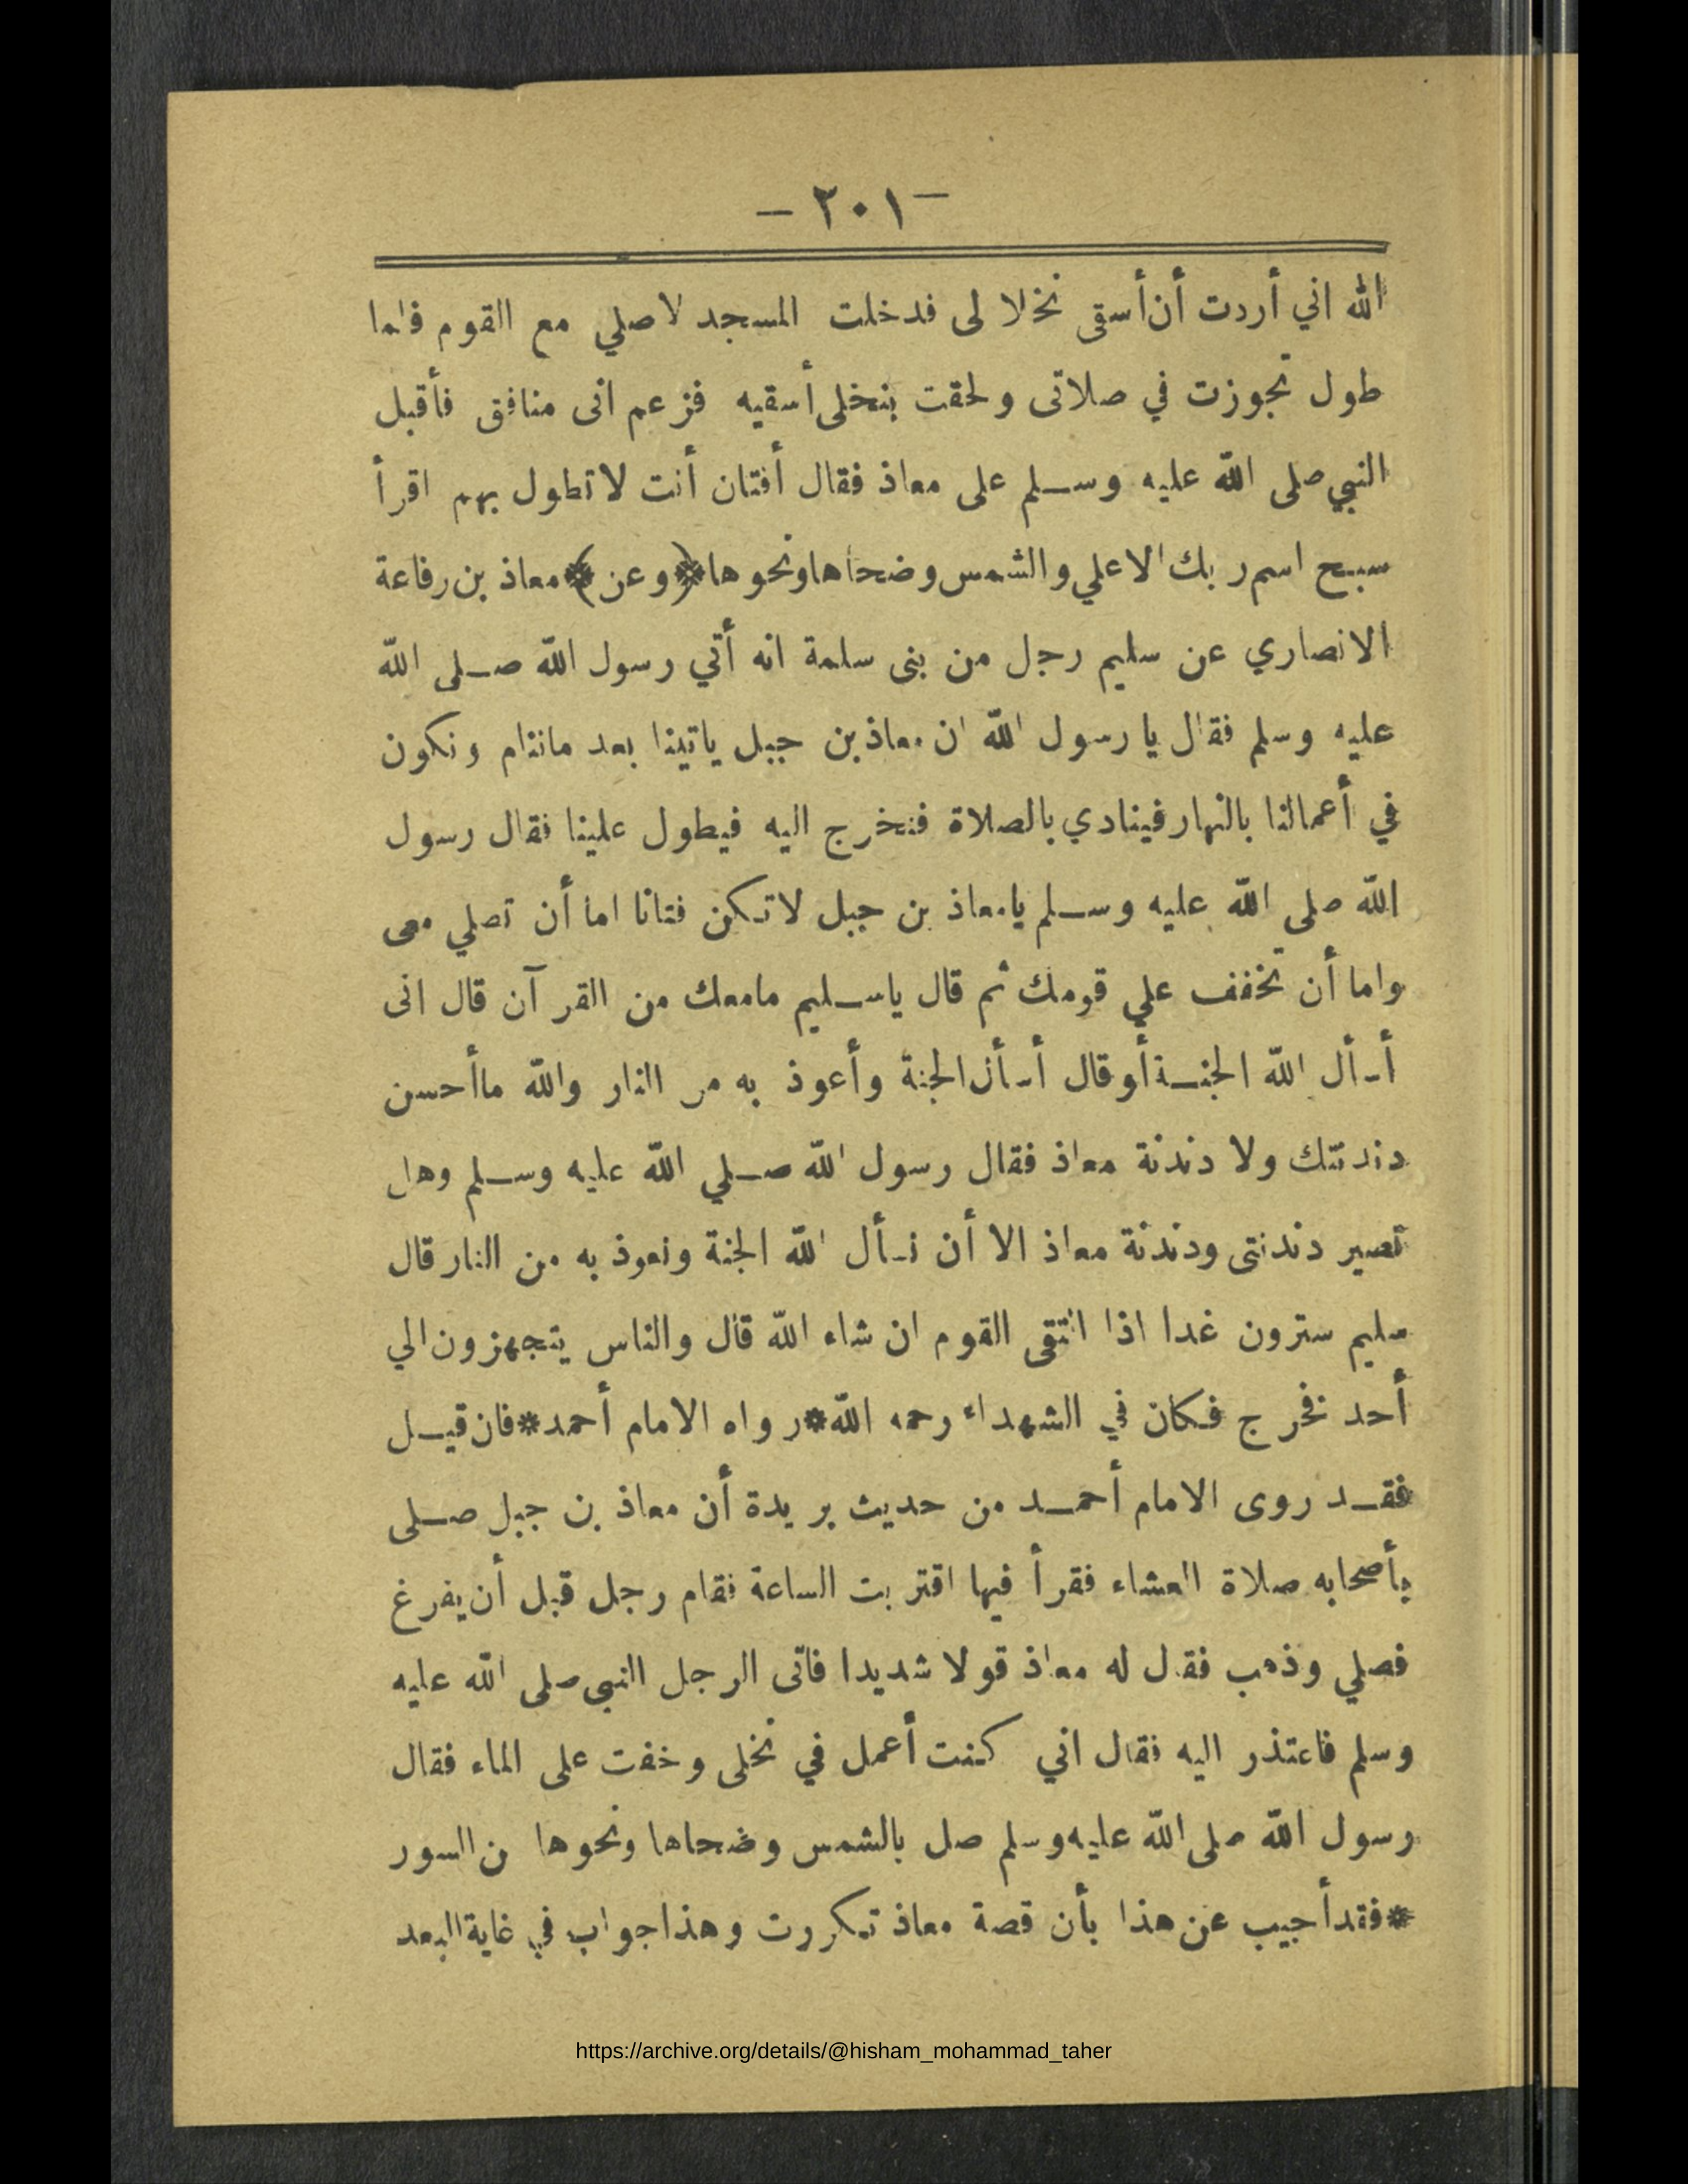 — ٢٠١ —
الله اني أردت أن أسقى نخلا لى فدخلت المسجد لاصلي مع القوم فلما
طول تجوزت في صلاتى ولحقت بنخلى أسقيه فزعم انى منافق فأقبل
النبي صلى الله عليه وسلم على معاذ فقال أفتان أنت لا تطول بهم اقرأ
سبح اسم ربك الاعلي والشمس وضحاها ونحوها ﴿وعن﴾ معاذ بن رفاعة
الانصاري عن سليم رجل من بنى سلمة انه أتي رسول الله صلى الله
عليه وسلم فقال يا رسول الله ان معاذ بن جبل ياتينا بعد ماننام ونكون
في أعمالنا بالنهار فينادي بالصلاة فنخرج اليه فيطول علينا فقال رسول
الله صلى الله عليه وسلم يامعاذ بن جبل لاتكن فتانا اما أن تصلي معى
واما أن تخفف علي قومك ثم قال ياسليم مامعك من القرآن قال انى
أسأل الله الجنة أو قال أسأل الجنة وأعوذ به من النار والله ماأحسن
دندنتك ولا دندنة معاذ فقال رسول الله صلي الله عليه وسلم وهل
تصير دندنتى ودندنة معاذ الا أن نسأل الله الجنة ونعوذ به من النار قال
سليم سترون غدا اذا التقى القوم ان شاء الله قال والناس يتجهزون الي
أحد فخرج فكان في الشهداء رحمه الله * رواه الامام أحمد * فان قيل
فقد روى الامام أحمد من حديث بريدة أن معاذ بن جبل صلى
بأصحابه صلاة العشاء فقرأ فيها اقتربت الساعة فقام رجل قبل أن يفرغ
فصلي وذهب فقال له معاذ قولا شديدا فاتى الرجل النبى صلى الله عليه
وسلم فاعتذر اليه فقال اني كنت أعمل في نخلى وخفت على الماء فقال
رسول الله صلى الله عليه وسلم صل بالشمس وضحاها ونحوها من السور
* فقد أجيب عن هذا بأن قصة معاذ تكررت وهذا جواب في غاية البعد
https://archive.org/details/@hisham_mohammad_taher